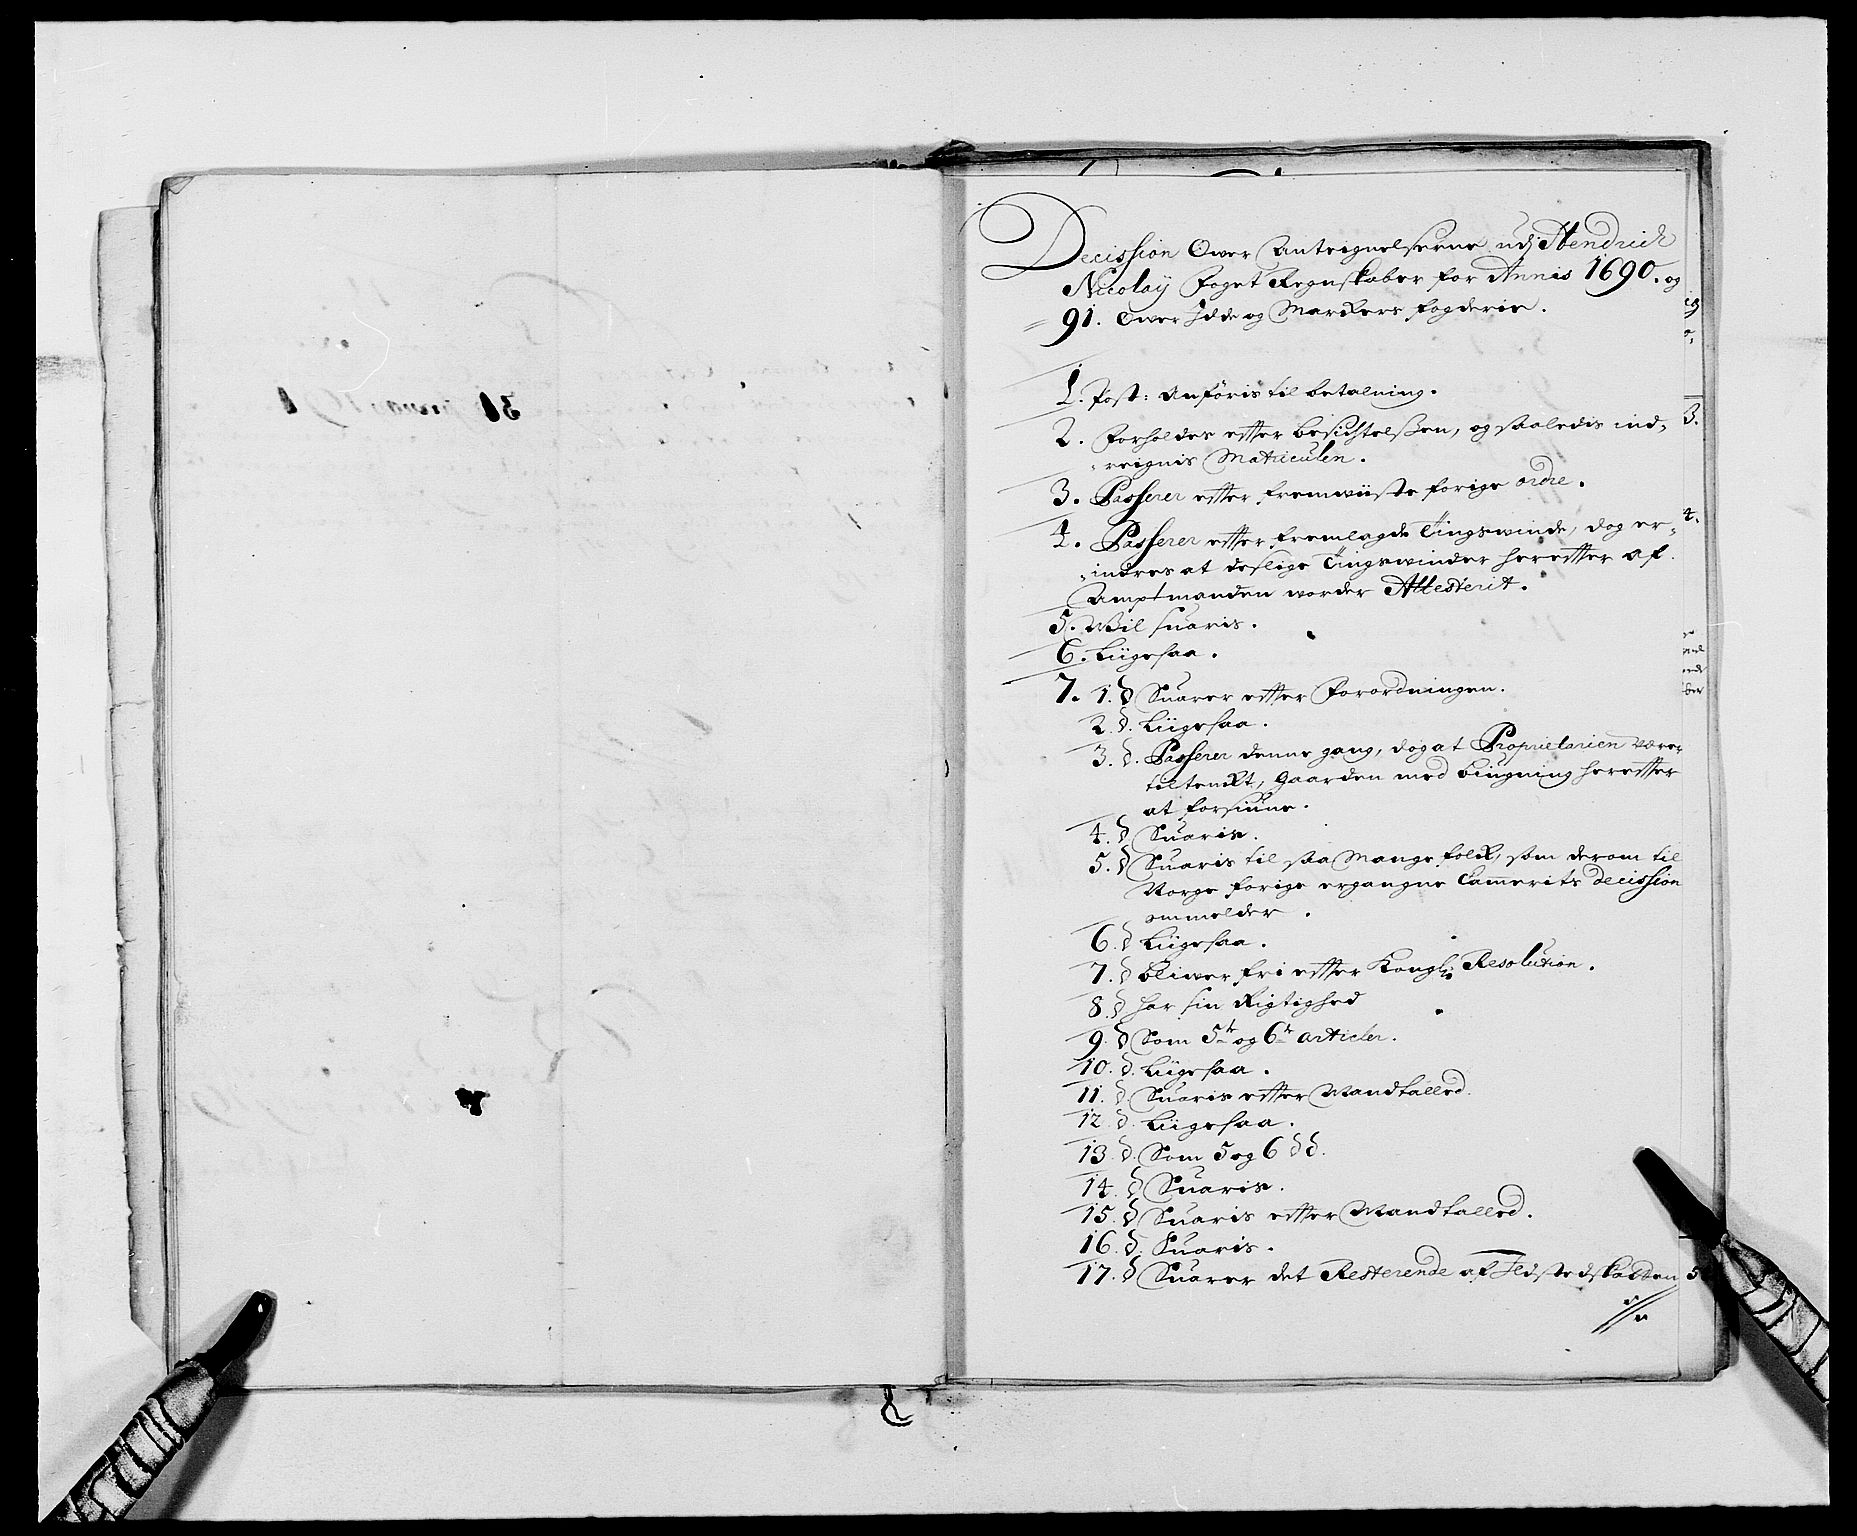 Decission Over Antegnelserne udj Hendrich
Nicolaÿ Foget Regnskaber for Annis 1690. og
91. Over Idde og Markers fogderie.
1. Post: Anföris til betalning.
2. Forholdes effter besichtelßen, og saaledis ind,
reignis Matriculen.
3. Passerer effter fremwiiste forige ordre.
4. Passerer effter fremlagde Tingswinde, dog er,
indres at deslige Tingswinder hereffter af
Amptmanden worder Attesterit.
5. Wil suaris.
6. Liigesaa.
7. 1. d Suarer effter Forordningen.
2. d. Liigesaa.
3. d. Passerer denne gang, dog at Proprietarien være
tiltenkt, Gaarden med biugning hereffter
at forsiune.
4. d Suaris.
5. d Suaris til saa Mange folk, som derom til
Norge forige ergangne Camerits decission
ommelder.
6. d Liigesaa.
7. d bliwer fri effter Kongl: Resolution.
8. d har sin Rigtighed
9. d Som 5te og 6te articler.
10. d. Liigesaa.
11. d Suaris effter Mandtalled.
12. d. Liigesaa.
13. d. Som 5 og 6 d d.
14. d Suaris.
15. d Suaris effter Mandtalled.
16. d. Suaris.
17. d Suarer det Resterende af Ildstedskatten